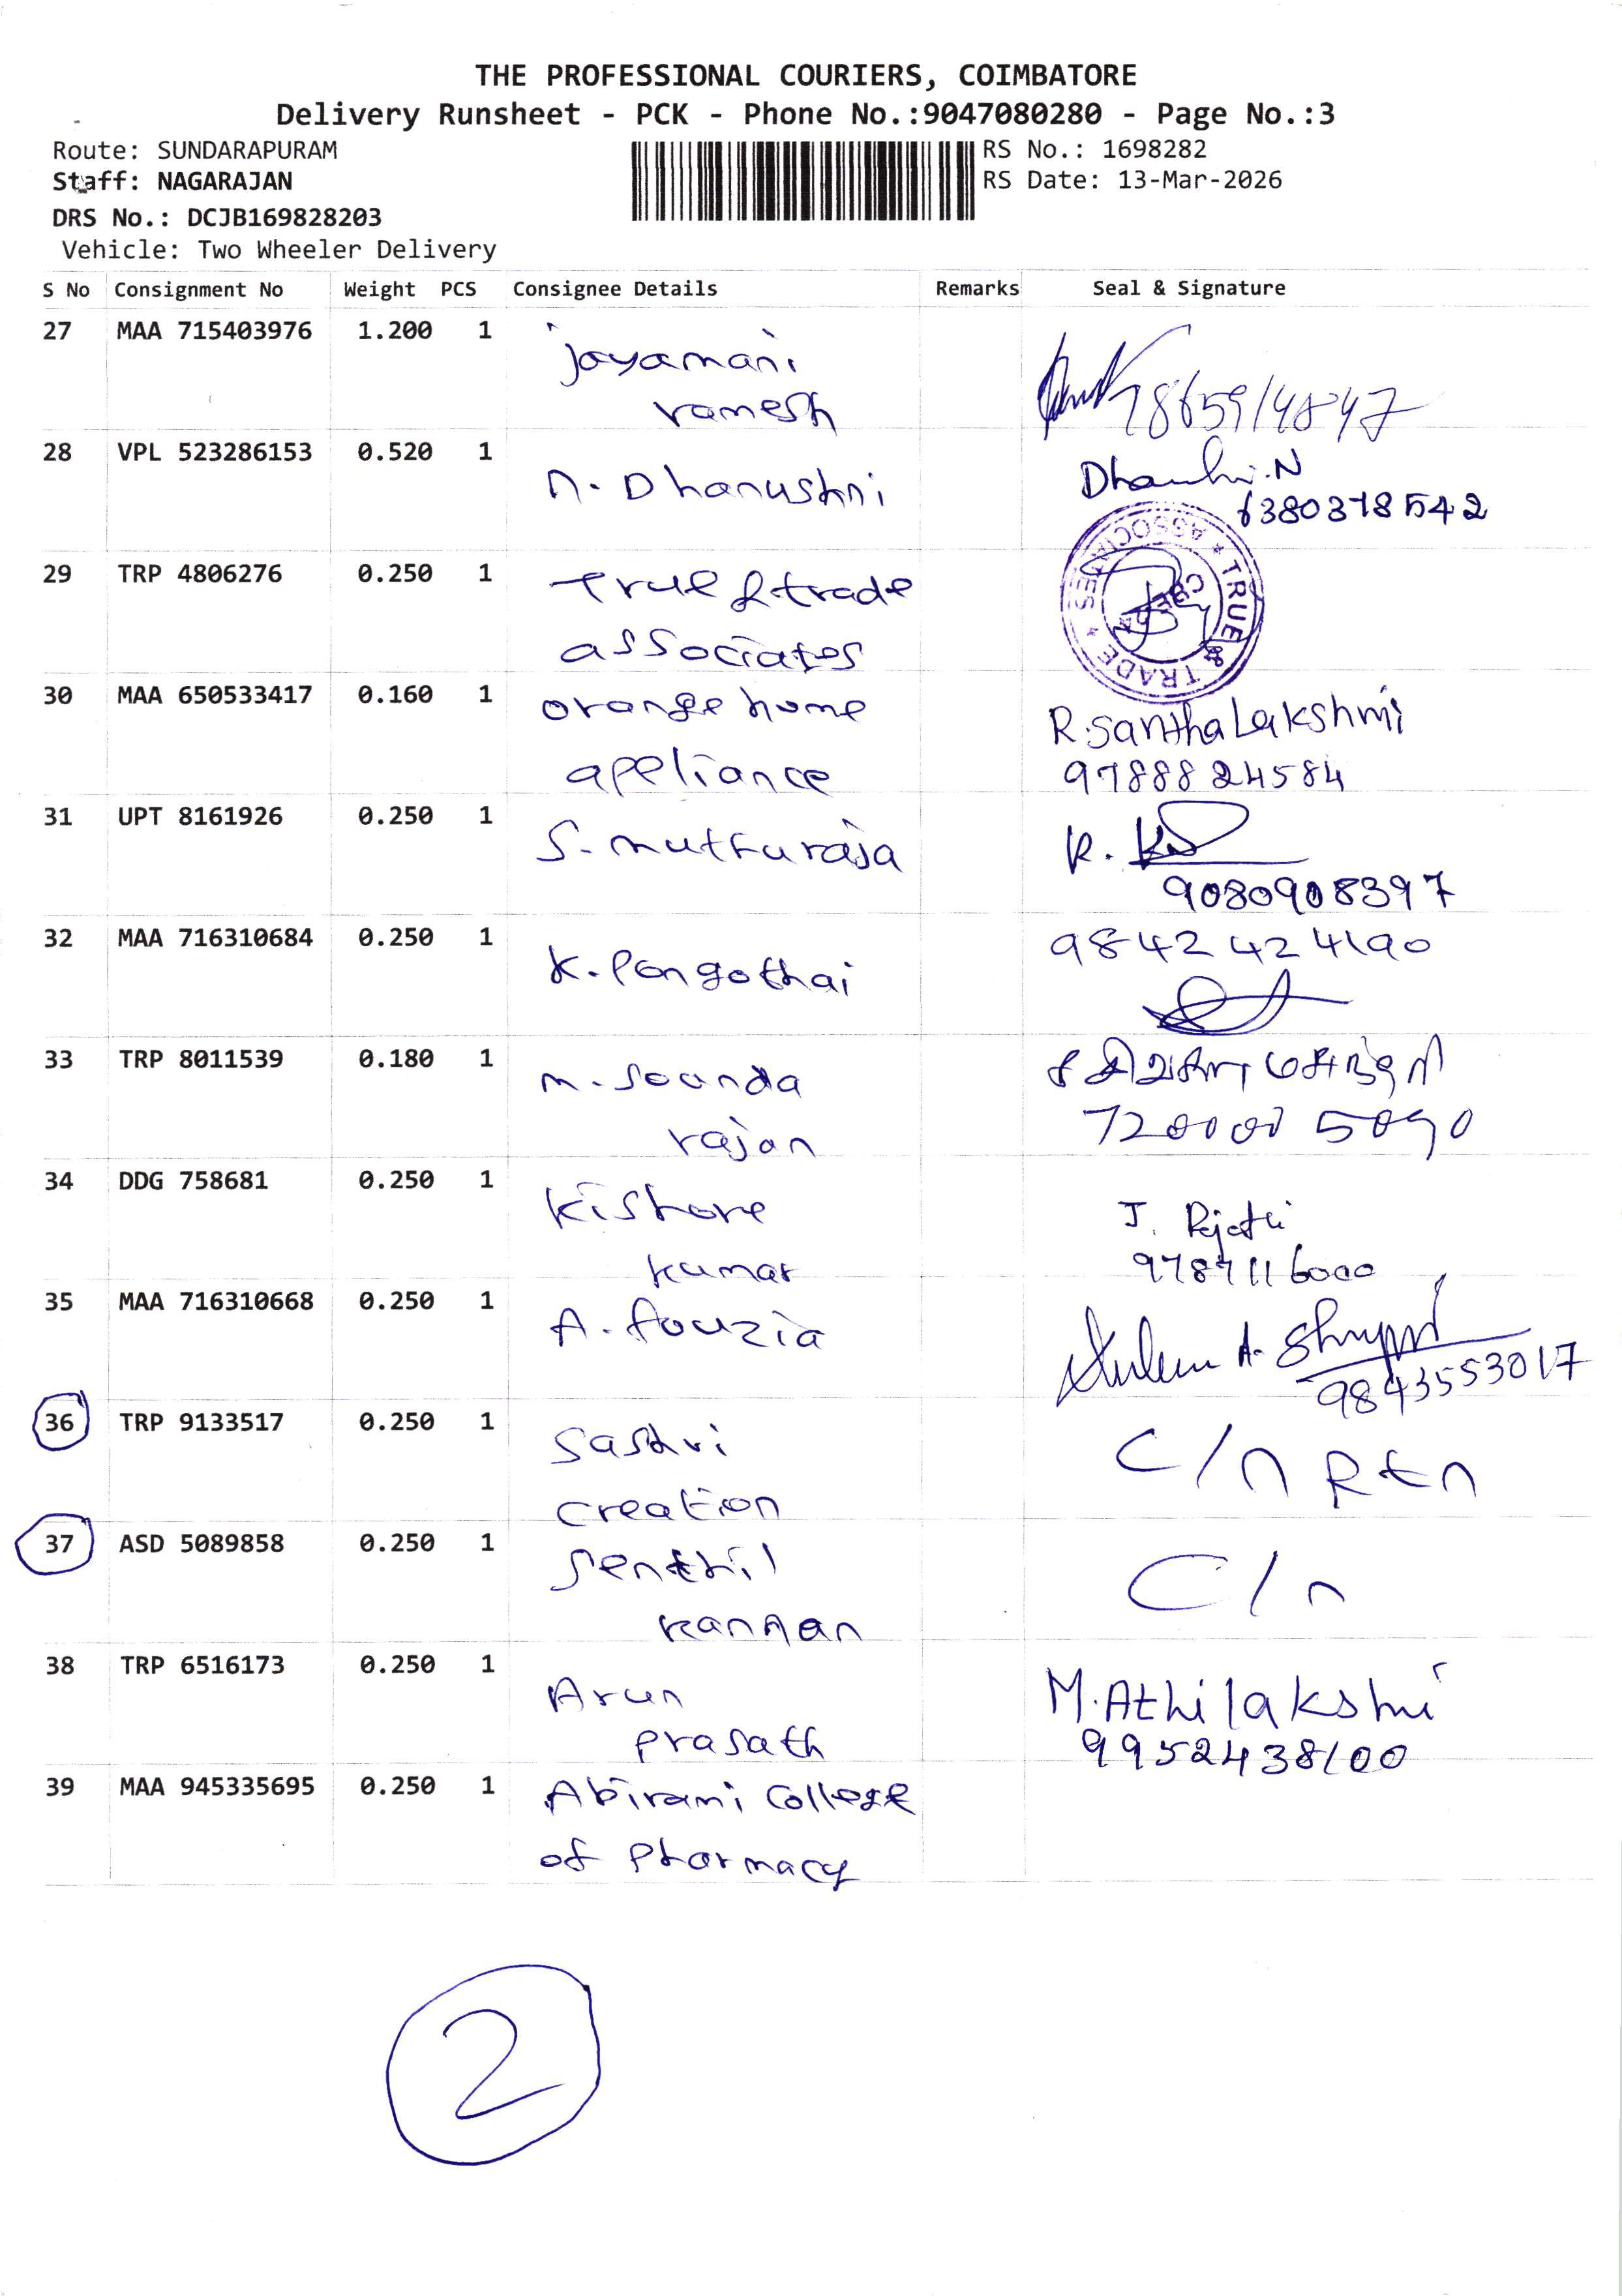 THE PROFESSIONAL COURIERS, COIMBATORE
Delivery Runsheet - PCK - Phone No.:9047080280 - Page No.:3
Route: SUNDARAPURAM
RS No.: 1698282
Staff: NAGARAJAN
RS Date: 13-Mar-2026
DRS No.: DCJB169828203
Vehicle: Two Wheeler Delivery
S No Consignment No Weight PCS Consignee Details Remarks Seal & Signature
27 MAA 715403976 1.200 1 jayamani
ramesh
28 VPL 523286153 0.520 1 n. Dhanushni
Dhanushni.N
6380378542
29 TRP 4806276 0.250 1 True & trade
associates
TRUE & TRADE ASSOCIATES
CBE
30 MAA 650533417 0.160 1 orange home
appliance
R.Santha Lakshmi
9788824584
31 UPT 8161926 0.250 1 S. mutturaja
K.
9080908397
32 MAA 716310684 0.250 1 K. Pongothai
9842424190
33 TRP 8011539 0.180 1 m. Sounda
rajan
34 DDG 758681 0.250 1 Kishore
kumar
J. Rejathi
9787116000
35 MAA 716310668 0.250 1 A. fouzia
A.
9843553017
36 TRP 9133517 0.250 1 Sastri
creation
C/n Rtn
37 ASD 5089858 0.250 1 Senthil
kannan
C/n
38 TRP 6516173 0.250 1 Arun
prasath
M.Athilakshmi
9952438100
39 MAA 945335695 0.250 1 Abirami College
of Pharmacy
2